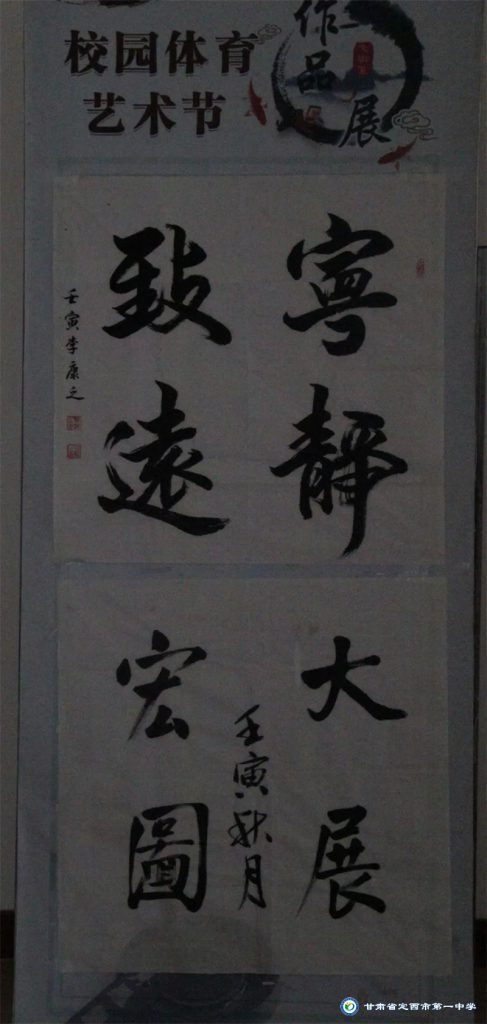 校园体育
艺术节
作品
展
寧靜
致遠
壬寅李康之
大展
宏圖
壬寅秋月
甘肃省定西市第一中学